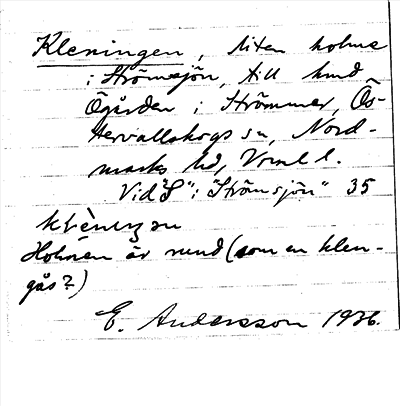 Kleningen, liten holme
i Strömsjön, till hmd
Ögården i Strömmer, Ös-
tervallskogs sn, Nord-
marks hd, Vrml l.
Vid "S" i "Strömsjön" 35
Holmen är rund (som en klen-
gås?)
E. Andersson 1936.